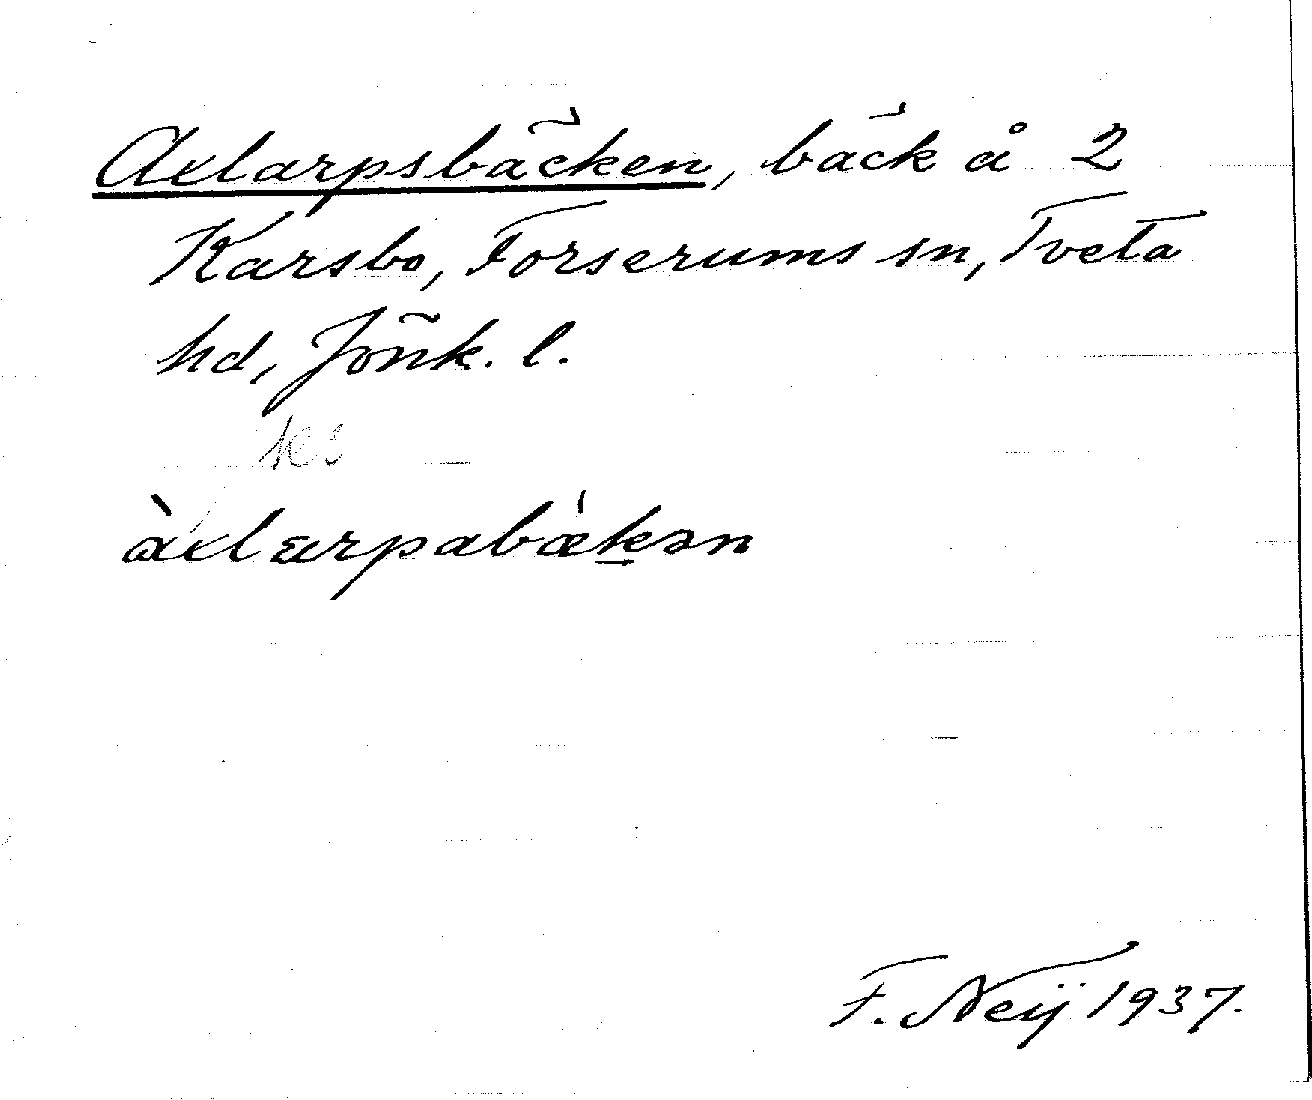 Axlarpsbäcken, bäck å 2
Karsbo, Forserums sn, Tveta
hd, Jönk. l.
ks
àxlarpabækən
F. Neij 1937.